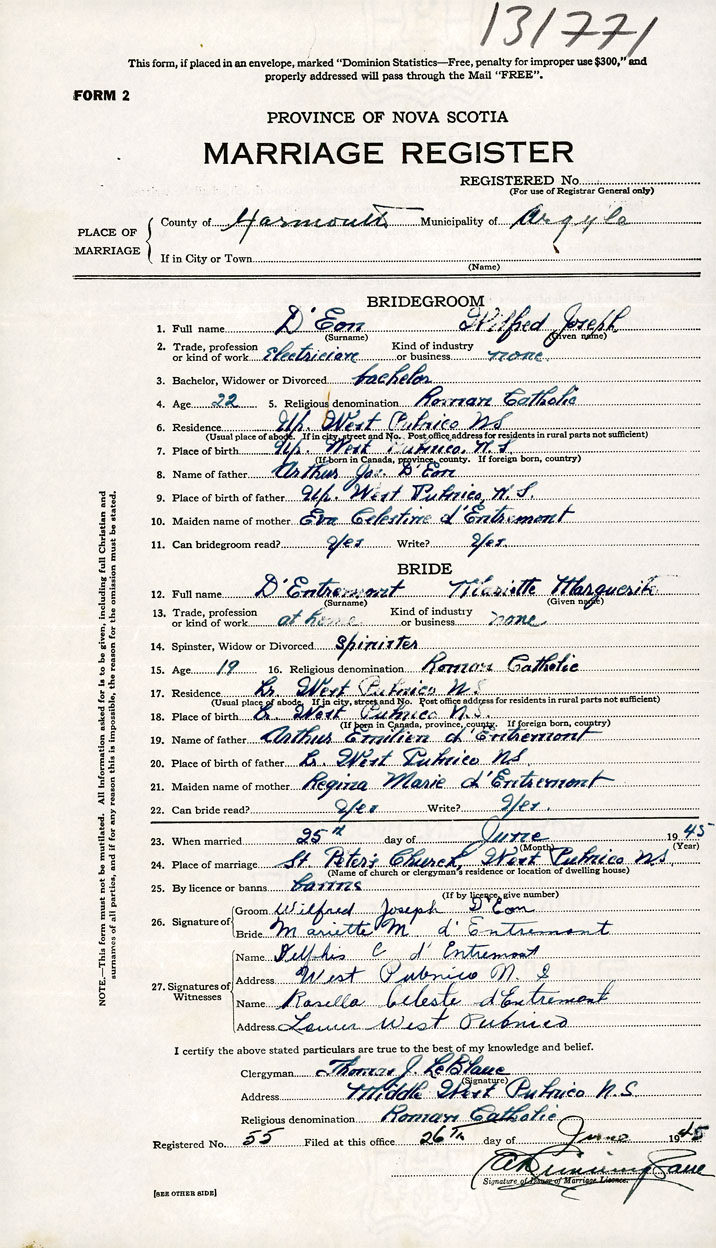 131771
This form, if placed in an envelope, marked “Dominion Statistics—Free, penalty for improper use $300,” and
properly addressed will pass through the Mail “FREE”.
FORM 2
PROVINCE OF NOVA SCOTIA
MARRIAGE REGISTER
REGISTERED No.
(For use of Registrar General only)
PLACE OF MARRIAGE
County of Yarmouth Municipality of Argyle
If in City or Town
(Name)
BRIDEGROOM
1. Full name D'Eon Wilfred Joseph
(Surname) (Given name)
2. Trade, profession or kind of work electrician Kind of industry or business none
3. Bachelor, Widower or Divorced bachelor
4. Age 22 5. Religious denomination Roman Catholic
6. Residence Up. West Pubnico NS
(Usual place of abode. If in city, street and No. Post office address for residents in rural parts not sufficient)
7. Place of birth Up. West Pubnico, N.S.
(If born in Canada, province, county. If foreign born, country)
8. Name of father Arthur Jos. D'Eon
9. Place of birth of father Up. West Pubnico, N.S.
10. Maiden name of mother Eva Celestine d'Entremont
11. Can bridegroom read? Yes Write? Yes
BRIDE
12. Full name D'Entremont Mariette Marguerite
(Surname) (Given name)
13. Trade, profession or kind of work at home Kind of industry or business none
14. Spinster, Widow or Divorced Spinister
15. Age 19 16. Religious denomination Roman Catholic
17. Residence Lr. West Pubnico N.S.
(Usual place of abode. If in city, street and No. Post office address for residents in rural parts not sufficient)
18. Place of birth L. West Pubnico N.S.
(If born in Canada, province, county. If foreign born, country)
19. Name of father Arthur Emilien d'Entremont
20. Place of birth of father Lr. West Pubnico NS
21. Maiden name of mother Regina Marie d'Entremont
22. Can bride read? Yes Write? Yes.
23. When married 25th day of June 1945
(Month) (Year)
24. Place of marriage St. Peter's Church, West Pubnico NS
(Name of church or clergyman's residence or location of dwelling house)
25. By licence or banns banns
(If by licence, give number)
26. Signature of Groom Wilfred Joseph D'Eon
Bride Mariette M d'Entremont
27. Signatures of Witnesses
Name Delphis C d'Entremont
Address West Pubnico N. S
Name Rosella Celeste d'Entremont
Address Lower West Pubnico
I certify the above stated particulars are true to the best of my knowledge and belief.
Clergyman Thomas J. LeBlanc
(Signature)
Address Middle West Pubnico N.S
Religious denomination Roman Catholic
Registered No. 55 Filed at this office 26th day of June 1945
Signature of Issuer of Marriage Licence.
[SEE OTHER SIDE]
NOTE.—This form must not be mutilated. All information asked for is to be given, including full Christian and
surnames of all parties, and if for any reason this is impossible, the reason for the omission must be stated.